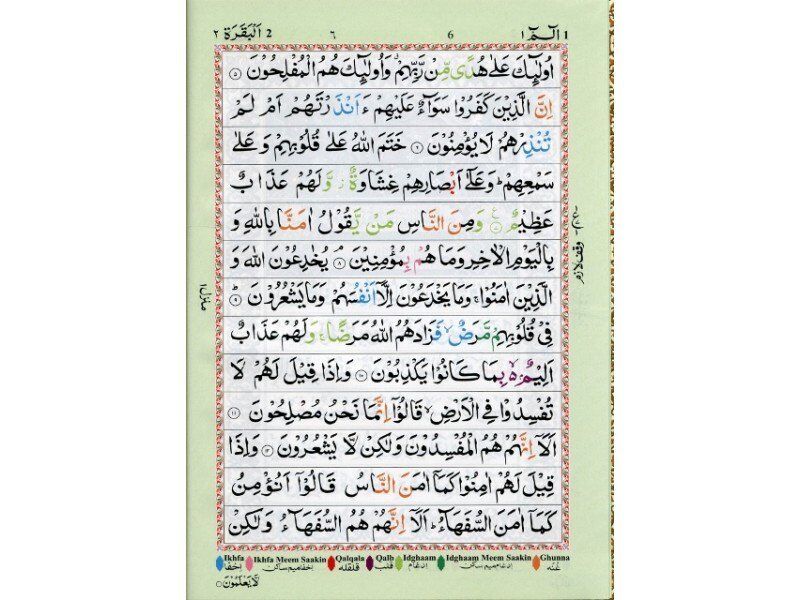 الٓـمّٓ ١ 1 6 ٦ 2 اَلْبَقَرَة ٢
اُولٰٓئِكَ عَلٰى هُدًى مِّنْ رَّبِّهِمْ ۗ وَاُولٰٓئِكَ هُمُ الْمُفْلِحُوْنَ ۝٥
اِنَّ الَّذِيْنَ كَفَرُوْا سَوَآءٌ عَلَيْهِمْ ءَاَنْذَرْتَهُمْ اَمْ لَمْ
تُنْذِرْهُمْ لَا يُؤْمِنُوْنَ ۝٦ خَتَمَ اللّٰهُ عَلٰى قُلُوْبِهِمْ وَعَلٰى
سَمْعِهِمْ ؕ وَعَلٰٓى اَبْصَارِهِمْ غِشَاوَةٌ ؗ وَّلَهُمْ عَذَابٌ
عَظِيْمٌ ۝٧ وَمِنَ النَّاسِ مَنْ يَّقُوْلُ اٰمَنَّا بِاللّٰهِ وَ
بِالْيَوْمِ الْاٰخِرِ وَمَا هُمْ بِمُؤْمِنِيْنَ ۝٨ يُخٰدِعُوْنَ اللّٰهَ وَ
الَّذِيْنَ اٰمَنُوْا ۚ وَمَا يَخْدَعُوْنَ اِلَّاۤ اَنْفُسَهُمْ وَمَا يَشْعُرُوْنَ ۝٩
فِيْ قُلُوْبِهِمْ مَّرَضٌ ۙ فَزَادَهُمُ اللّٰهُ مَرَضًا ۚ وَلَهُمْ عَذَابٌ
اَلِيْمٌۢ ۙ۬ بِمَا كَانُوْا يَكْذِبُوْنَ ۝١٠ وَاِذَا قِيْلَ لَهُمْ لَا
تُفْسِدُوْا فِي الْاَرْضِ ۙ قَالُوْۤا اِنَّمَا نَحْنُ مُصْلِحُوْنَ ۝١١
اَلَاۤ اِنَّهُمْ هُمُ الْمُفْسِدُوْنَ وَلٰكِنْ لَّا يَشْعُرُوْنَ ۝١٢ وَاِذَا
قِيْلَ لَهُمْ اٰمِنُوْا كَمَاۤ اٰمَنَ النَّاسُ قَالُوْۤا اَنُؤْمِنُ
كَمَاۤ اٰمَنَ السُّفَهَآءُ ؕ اَلَاۤ اِنَّهُمْ هُمُ السُّفَهَآءُ وَلٰكِنْ
وقف لازم
منزل ١
Ikhfa Ikhfa Meem Saakin Qalqala Qalb Idghaam Idghaam Meem Saakin Ghunna
اخفا اخفا میم ساکن قلقلہ قلب ادغام ادغام میم ساکن غنّہ
لَّا يَعْلَمُوْنَ